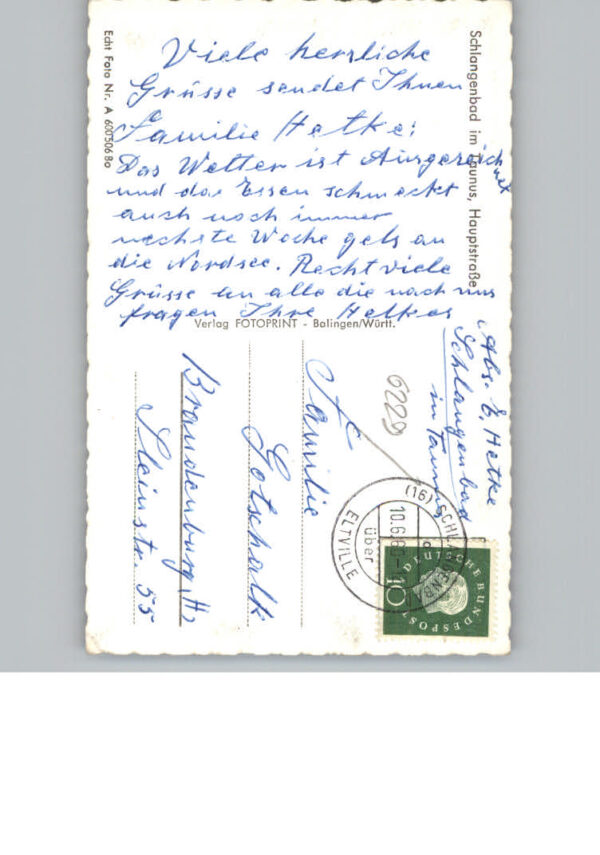 Viele herzliche
Grüsse sendet Ihnen
Familie Hetke!
Das Wetter ist Ausgezeichnet
und das Essen schmeckt
auch noch immer
nechste Woche gets an
die Nordsee. Recht viele
Grüsse an alle die nach uns
fragen Ihre Hetkes
Echt Foto Nr. A 600506 Bo
Schlangenbad im Taunus, Hauptstraße
Verlag FOTOPRINT - Balingen/Württ.
Abs. E. Hetke
Schlangenbad
im Taunus
6229
Familie
Gotschalk
Brandenburg (H)
Steinstr. 55
(16) SCHLANGENB
10.6.60
über
ELTVILLE
DEUTSCHE BUNDESPOST
10